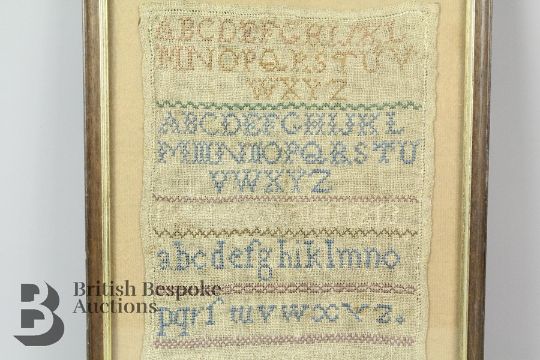 ABCDEFGHIJKL
MNOPQRSTUV
WXYZ
ABCDEFGHIJKL
MNOPQRSTU
VWXYZ
abcdefghiklmno
pqrſuvwxyz.
British Bespoke
Auctions